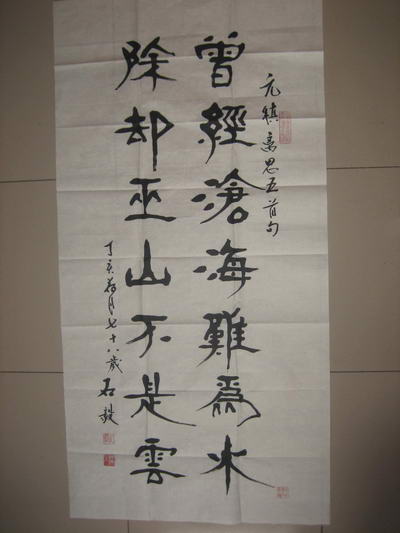 元稹离思五首句
曾經滄海難爲水
除却巫山不是雲
丁亥荷月七十八歲 石毅